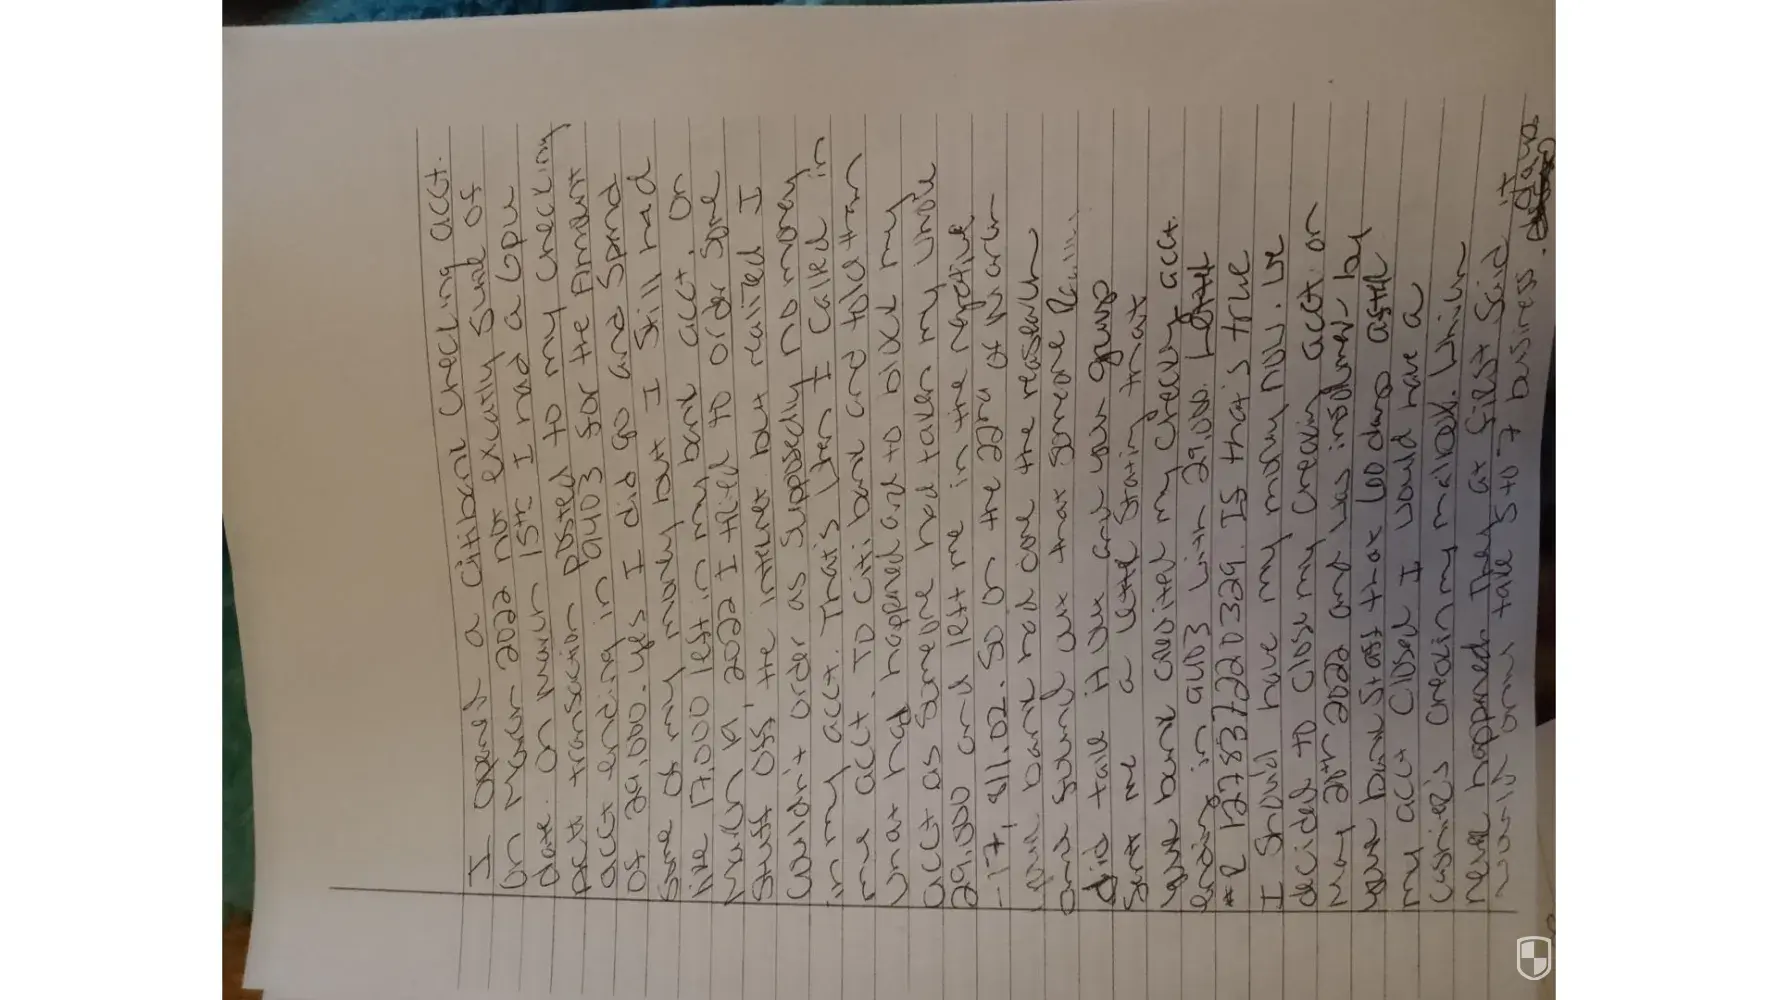 I opened a Citibank Checking acct.
on March 2022 not exactly sure of
date. On March 15th I had a Gpu
pelt transaction posted to my checking
acct ending in 9403 for the Amount
of 29,000. Yes I did go and spend
some of my money but I still had
like 17,000 left in my bank acct. On
March 19, 2022 I tried to order some
stuff off, the internet but realized I
couldn't order as supposedly no money
in my acct. That's when I called in
my acct. TO Citi bank and told them
what had happened and to block my
acct as someone had taken my whole
29,000 and left me in the negative
-17,811.02. So on the 22nd of March
your bank had done the research
and found out that someone
did take it out and you guys
sent me a letter stating that
your bank credited my checking acct
ending in 9403 with 29,000. Letter
# R12783722 0329. If that's true
I should have my money now. We
decided to close my checking acct on
may 20th 2022 and was informed by
your bank staff that 60 days after
my acct closed I would have a
cashier's check in my mailbox. Which
never happened. They at first said it
would only take 5 to 7 business days.